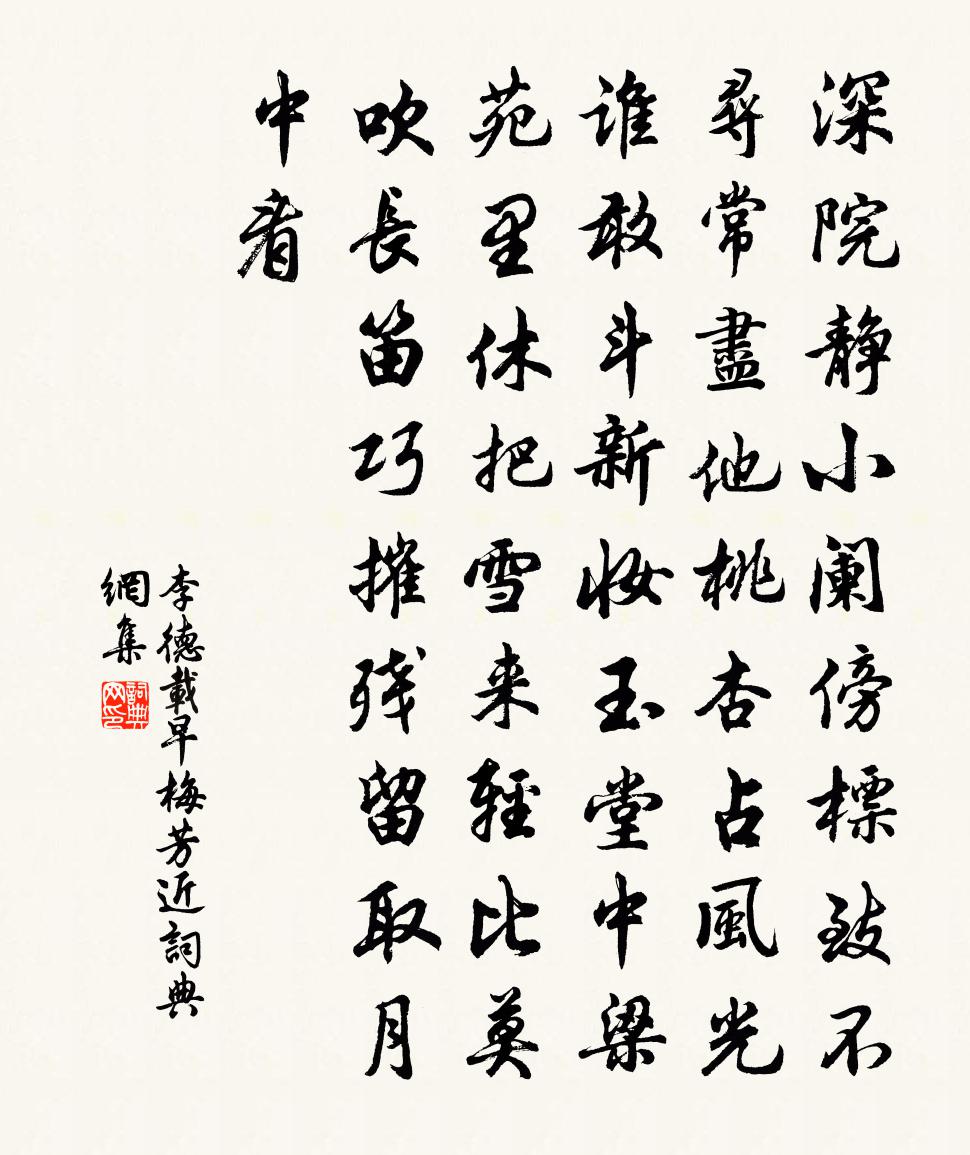 深院静小阑傍標致不
尋常盡他桃杏占風光
谁敢斗新妝玉堂中梁
苑里休把雪来輕比莫
吹長笛巧摧残留取月
中看
李德載早梅芳近詞典
網集
詞典网印